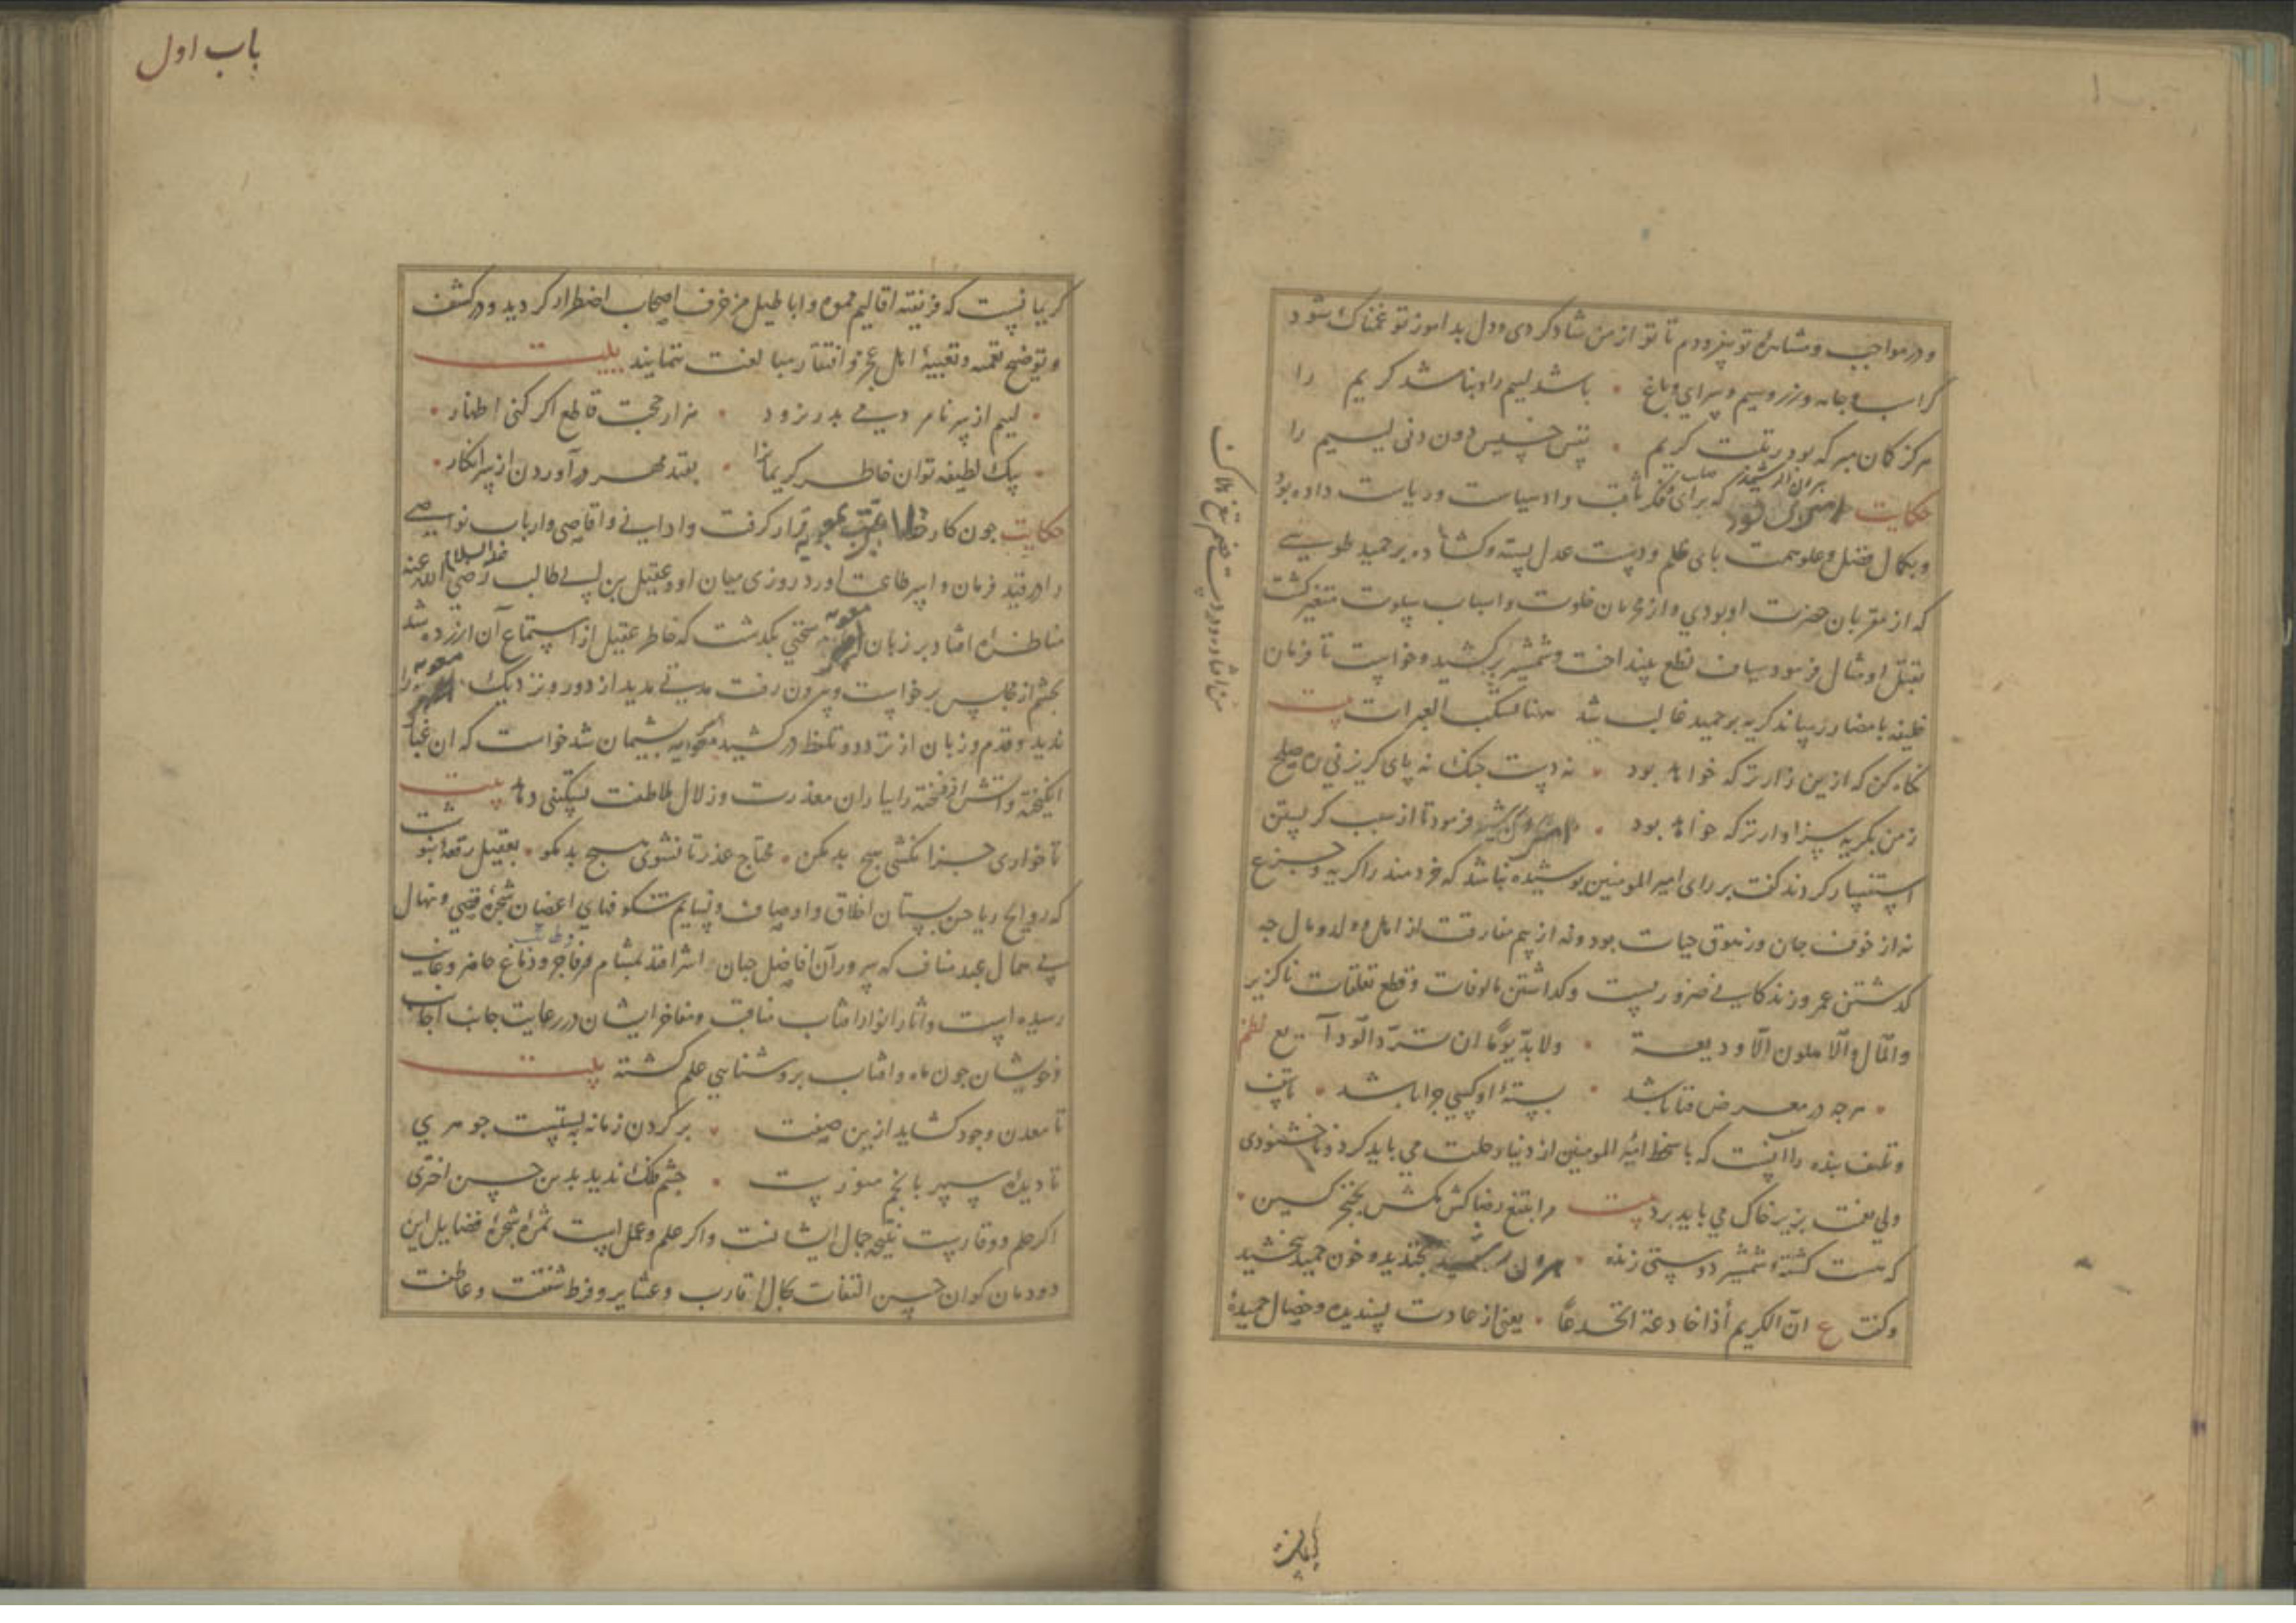 و در مواجب و مشاهرهٔ تو بیفزودم تا تو از من شاد کردی و دل بد اموز تو غمناک شود
کر اسب و جامه و زر و سیم و سرای و باغ • باشد لیم را و نباشد کریم را
هرکز کمان مبر که بود رتبت کریم • نفس خسیس دون دنی لیم را
حکایت هرون الرشید که برای و فکر ثاقب داد سیاست و ریاست داده بود
و بکمال فضل و علو همت پای ظلم و دست عدل بسته و کشاده بر حمید طوسی
که از مقربان حضرت او بودی و از محرمان خلوت و اسباب سلوت متغیر کشت
بقتل او مثال فرمود سیاف نطع بینداخت و شمشیر برکشید و خواست تا فرمان
خلیفه بامضا رساند کریه بر حمید غالب شد هنا تسکب العبرات بیت
نکاه کن که ازین زارتر که خواهد بود • نه دست جنک نه پای کریز نی ره صلح
ز من بکریه سزاوارتر که خواهد بود • فرمود تا از سبب کریستن
استفسار کردند کفت بر رای امیر المومنین پوشیده نباشد که خردمند را کریه و جزع
نه از خوف جان و زهوق حیات بود و نه از بیم مفارقت از اهل و ولد و مال چه
کذشتن عمر و زندکانی ضروریست و کذاشتن مالوفات و قطع تعلقات ناکزیر
و المال و الاهلون الا ودیعة • و لا بد یوما ان ترد الودایع نظم
• هرچه در معرض فنا باشد • بستهٔ او کسی چرا باشد •
و تلهف بنده را آنست که با سخط امیر المومنین از دنیا رحلت می باید کرد و ناخشنودی
ولی نعمت بزیر خاک می باید برد بیت مرا بتیغ رضا کش مکش بخنجر کین •
که هست کشتهٔ شمشیر دوستی زنده • هرون بخندید و خون حمید بخشید
و کفت ع ان الکریم اذا خادعته انخدعا • یعنی از عادت پسندیده و خصال حمیدهٔ
باب اول
کریمانست که فریفتهٔ اقالیم مموه و اباطیل مزخرف اصحاب اضطرار کردید و در کشف
و توضیح تعمیه و تعبیهٔ اهل عجز و افتقار مبالغت ننمایند بیت
• لیم از سر نامردمی بدر نرود • هزار حجت قاطع اکر کنی اظهار •
• بیک لطیفه توان خاطر کریمانرا • بقید مهر در آوردن از سر انکار •
حکایت چون کار قرار کرفت و ادانی و اقاصی و ارباب نواصی
را در قید فرمان و اسیر طاعت آورد روزی میان او و عقیل بن ابی طالب رضی الله عنه
مناظره افتاد بر زبان معویه سخنی بکذشت که خاطر عقیل از استماع آن ازرده شد
بخشم از مجلس برخاست و بیرون رفت مدتی مدید از دور و نزدیک معویه را
ندید و قدم و زبان از تردد و تلفظ در کشید معویه پشیمان شد خواست که ان غبار
انکیخته و اتش افروخته را بباران معذرت و زلال ملاطفت تسکینی دهد بیت
تا خواری جزا نکشی هیچ بد مکن • محتاج عذر تا نشوی هیچ بد مکو • بعقیل رقعه نبشت
که روایح ریاحین بستان اخلاق و اوصاف و نسایم شکوفهای اغصان شجرهٔ قصی و نهال
بی همال عبد مناف که سرور آن افاضل جهان اشراقند بمشام و دماغ حاضر و غایب
رسیده است و اثار انوار افتاب مناقب و مفاخر ایشان در رعایت جانب اجانب
و خویشان چون ماه و افتاب بروشنایی علم کشته بیت
تا معدن وجود کشاید ازین صفت • بر کردن زمانه نبستست جوهری
تا دیده سپهر بانجم منورست • چشم فلک ندید بدین حسن اختری
اکر حلم و وقارست نتیجه جمال ایشانست و اکر علم و عمل است ثمره شجرهٔ فضایل این
دودمان کران حسن التفات بکمال اقارب و عشایر و فرط شفقت و عاطفت